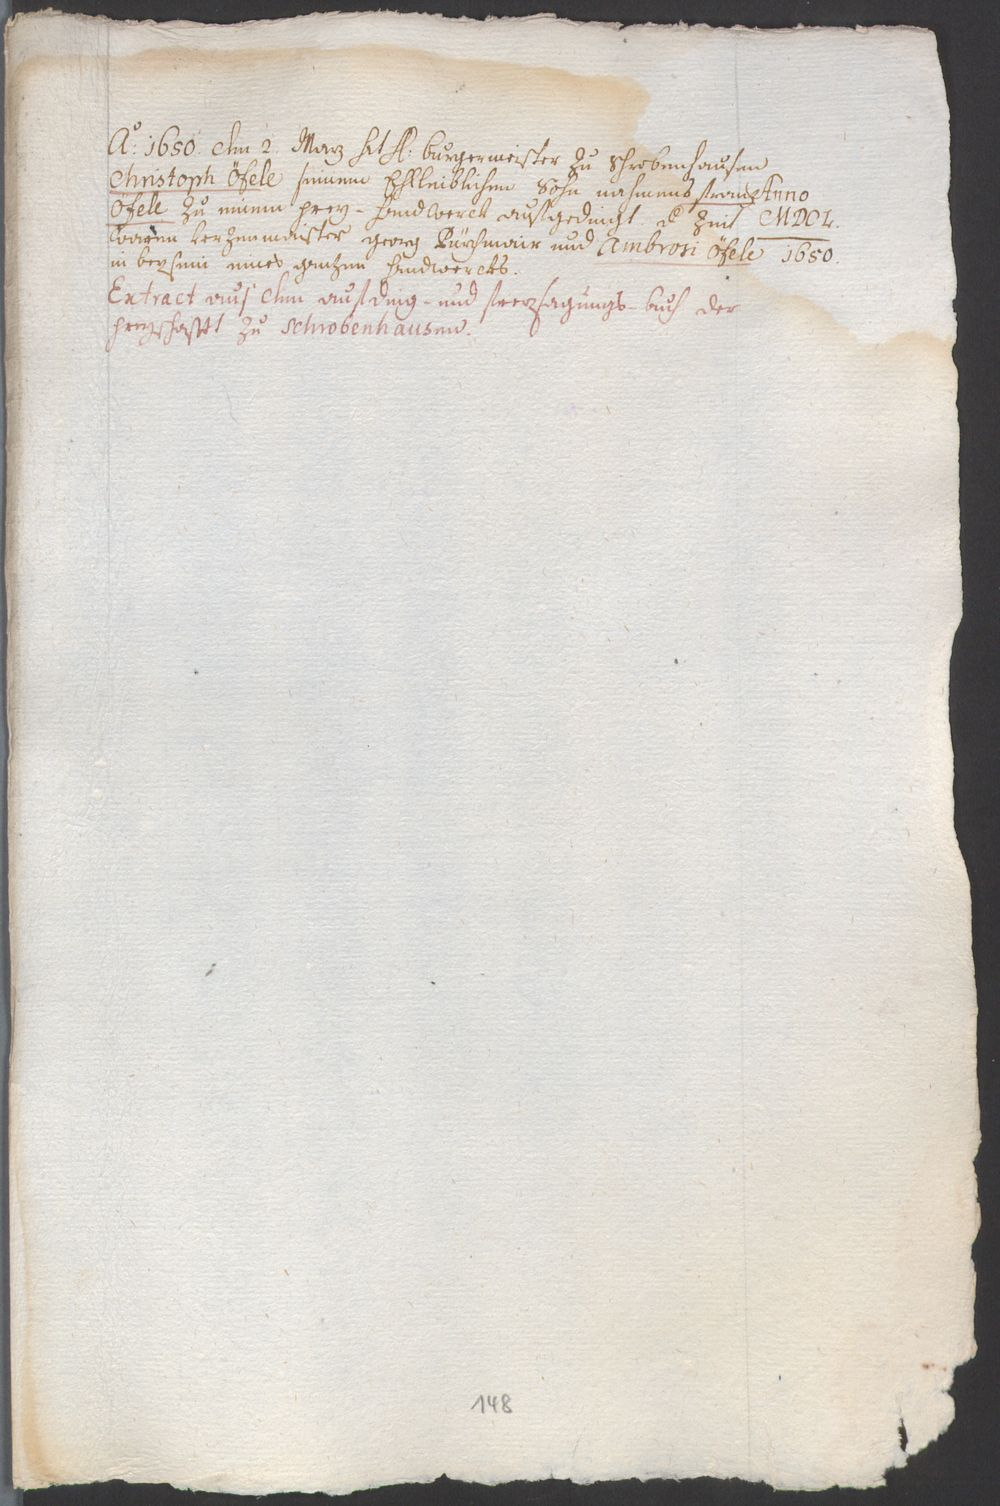 Aº: 1650 den 2. Marz hat H: burgermeister zu Schrobenhausen
Christoph Öfele seinem Ehleiblichen Sohn nahmens Franz
Öfele zu einem prey-handwerck aufgedingt. d Zeit
waren Kerzenmaister georg und Ambrosi Öfele
in beysein eines gantzen handwercks.
Anno
MDCL.
1650.
Extract aus dem aufding- und freysagungs-buch der
zu Schrobenhausen.
148